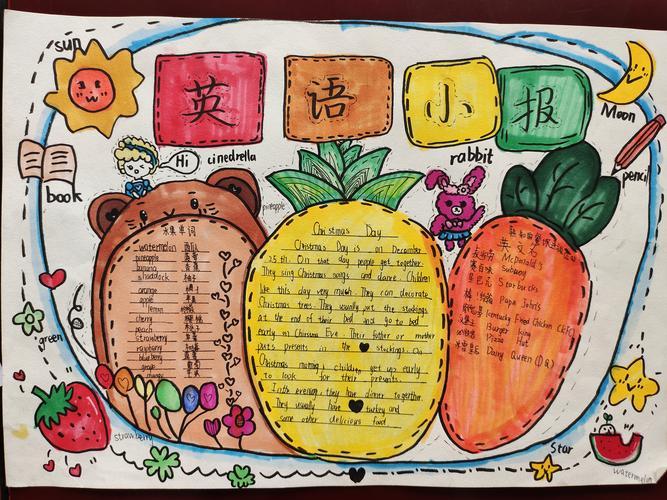 sun
英语小报
Moon
Hi
cinedrella
rabbit
book
pencil
pineapple
水果单词
watermelon 西瓜
pineapple 菠萝
banana 香蕉
shaddock 柚子
orange 橘子
apple 苹果
lemon 柠檬
cherry 樱桃
peach 桃子
strawberry 草莓
blueberry 蓝莓
grape
mango
Christmas Day
Christmas Day is on December
25 th. On that day people get together.
They sing Christmas songs and dance Children
like this day very much. They can decorate
Christmas trees. They usually put the stockings
at the end of their bed and go to bed
early on Christmas Eve. Their father or mother
puts presents the stockings On
Christmas morning, children get up early
to look for their presents.
In the evening, they have dinner together.
They usually have turkey and
some other delicious food
英文名
麦当劳 McDonald's
赛百味 Subway
星巴克 Starbucks
棒!约翰 Papa John's
肯德基 Kentucky Food Chicken (KFC)
汉堡王 Burger King
必胜客 Pizza Hut
冰雪皇后 Dairy Queen (DQ)
green
strawberry
Star
watermelon